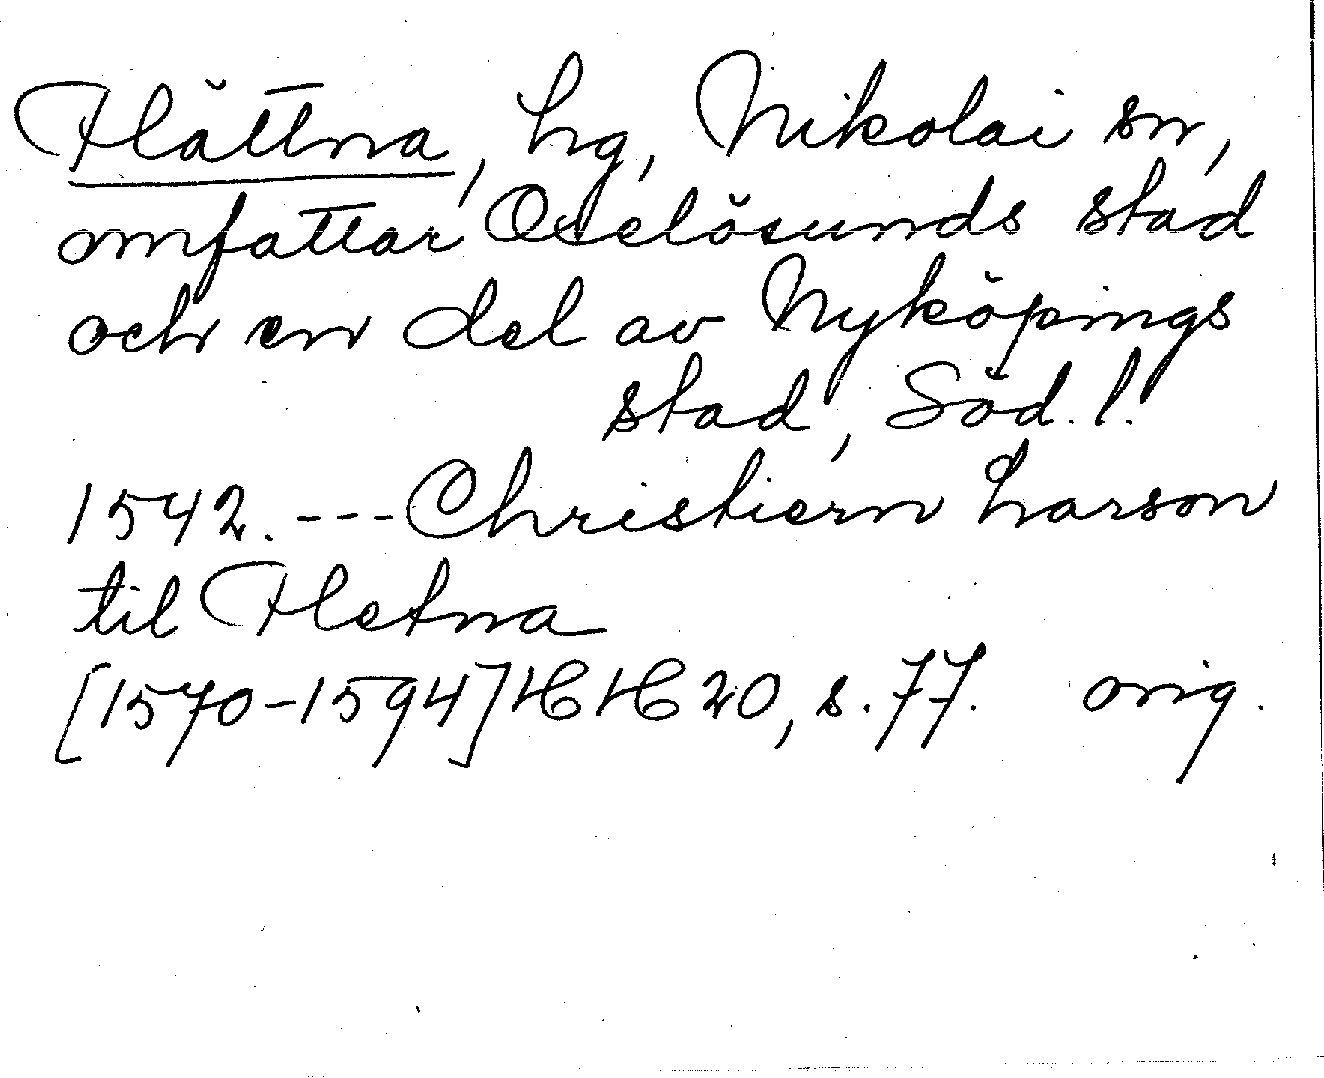 Hättna, hg, Nikolai sn,
omfattar Oxelösunds stad
och en del av Nyköpings
stad, Söd. l.
1542. --- Christiern Larson
til Hetna
[1570-1594] HH 20, s. 77. orig.